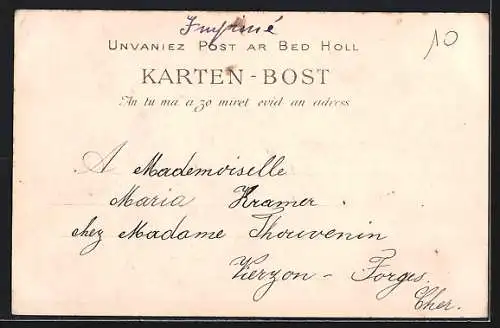 Imprimé
10
UNVANIEZ POST AR BED HOLL
KARTEN-BOST
An tu ma a zo miret evid an adress
A Mademoiselle
Maria Kramer
chez Madame Thouvenin
Vierzon - Forges.
Cher.